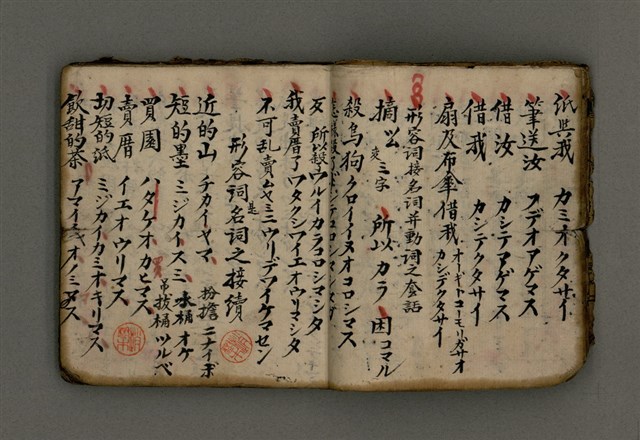 紙與我 カミオクタサイ
筆送汝 フデオアゲマス
借汝 カシテアゲマス
借我 カシテクタサイ
扇及布傘借我 オーギトコーモリガサオカシテクタサイ
形容詞接名詞并動詞之套語
摘公 爽 三字 所以 カラ 困 コマル
殺烏狗 クロイイヌオコロシマス
歹 所以殺 ワルイカラコロシマシタ
我賣厝了 ワタクシワイエオウリマシタ
不可乱賣 ムヤミニウリデワイケマセン
形容詞是名詞之接續
近的山 チカイヤマ 扮擔 ニナイボ
短的墨 ミジカイスミ 水桶 オケ 吊拔桶 ツルベ
買園 ハタケオカヒマス
賣厝 イエオウリマス
切短的紙 ミジカイカミオキリマス
飲甜的茶 アマイチャオノミマス